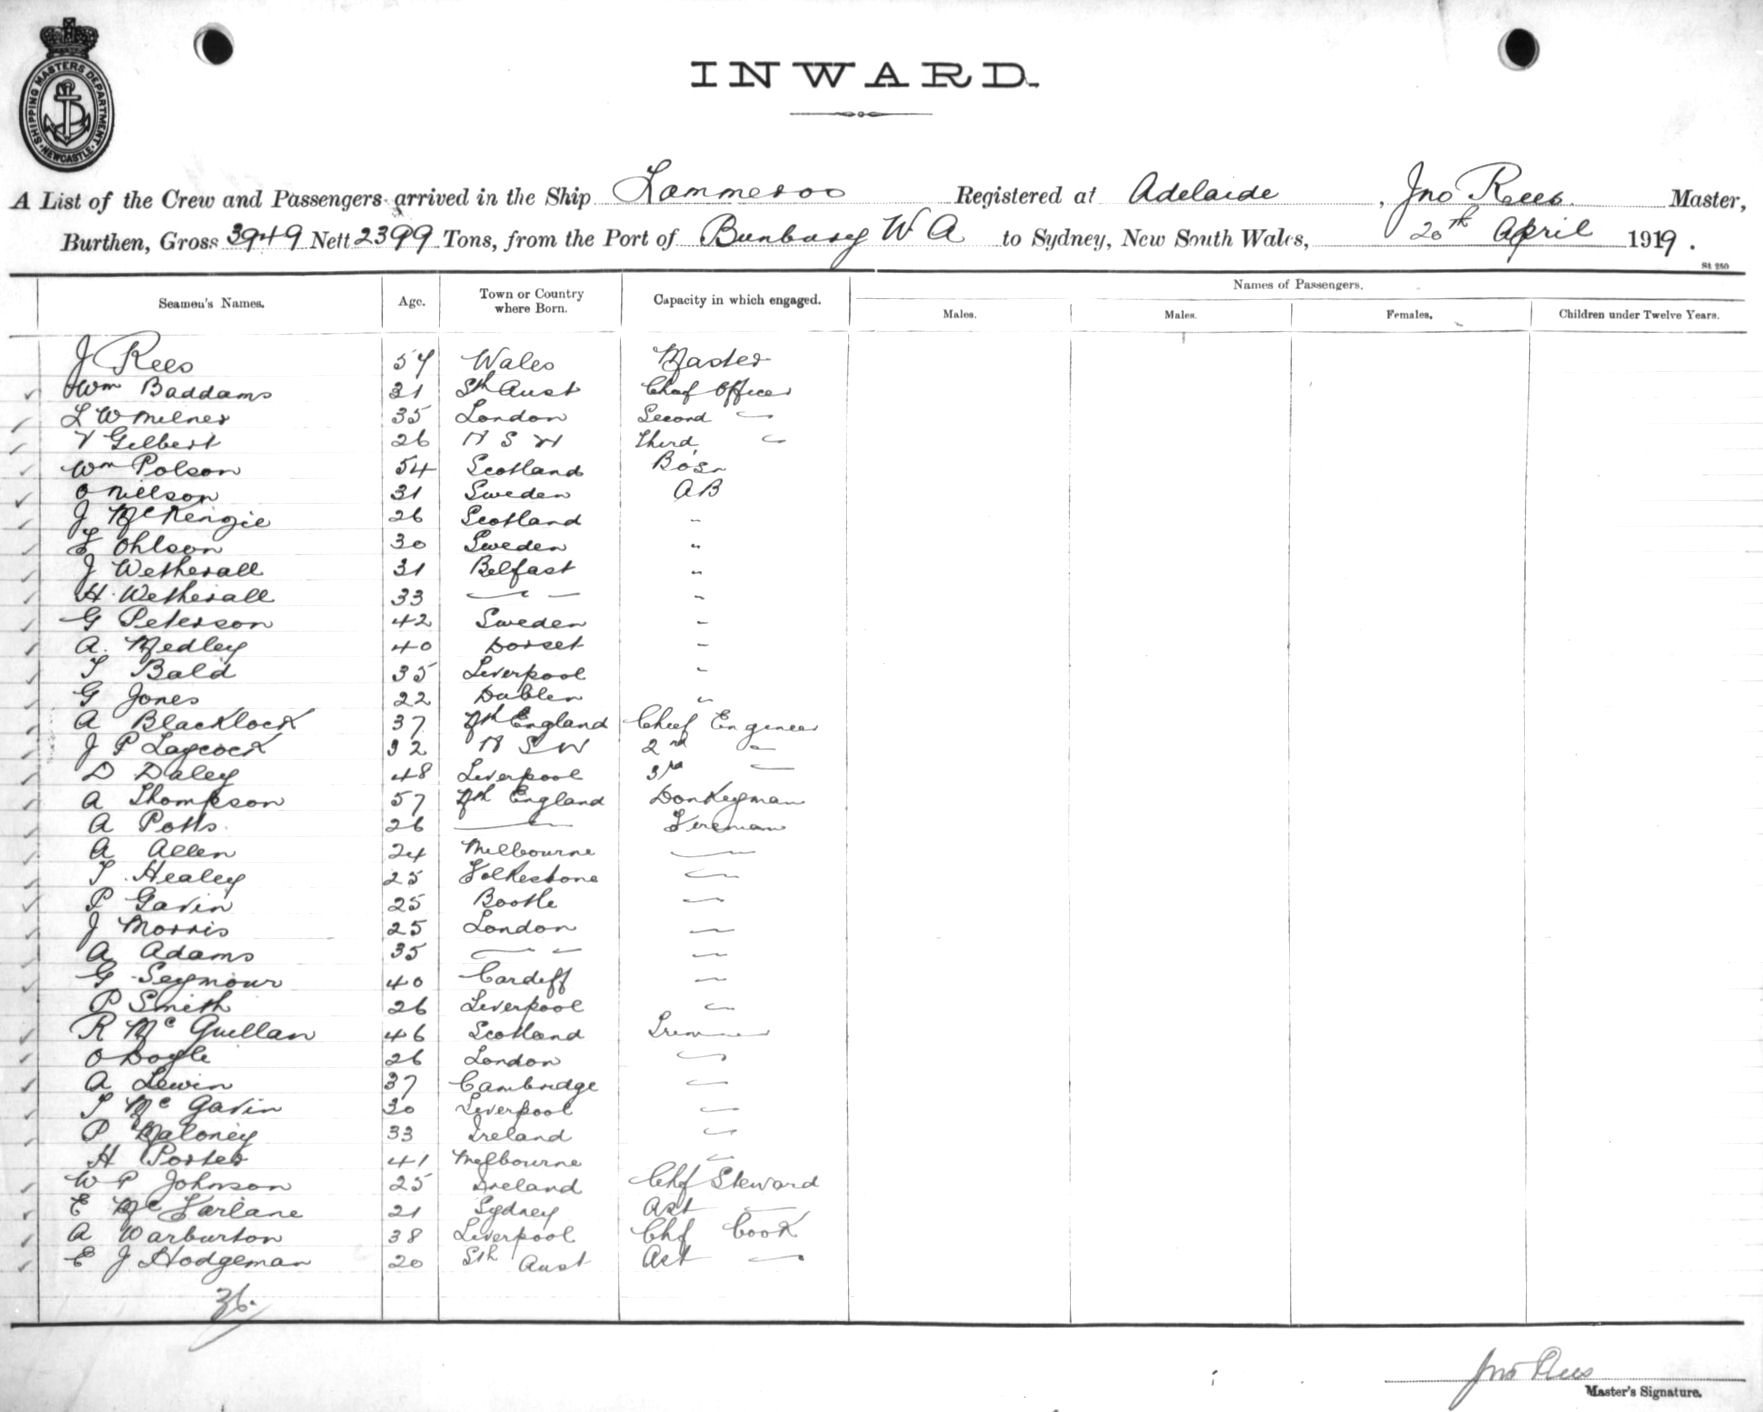 SHIPPING MASTERS DEPARTMENT
NEWCASTLE
INWARD.
A List of the Crew and Passengers arrived in the Ship Lammeroo Registered at Adelaide, Jno Rees Master,
Burthen, Gross 3949 Nett 2399 Tons, from the Port of Bunbury W A to Sydney, New South Wales, 20th April 1919.
Names of Passengers.
Seamen's Names. Age. Town or Country where Born. Capacity in which engaged. Males. Males. Females. Children under Twelve Years.
J Rees 57 Wales Master
Wm Baddams 31 Sth Aust Chief Officer
L W Milner 35 London Second "
V Gilbert 26 N S W Third "
Wm Polson 54 Scotland Bosn
O Nilson 31 Sweden AB
J McKenzie 26 Scotland "
Ohlson 30 Sweden "
J Wetherall 31 Belfast "
H Wetherall 33 " "
G Peterson 42 Sweden "
A. Medley 40 Dorset "
T Bald 35 Liverpool "
G Jones 22 Dublin "
A Blacklock 37 Nth England Chief Engineer
J P Laycock 32 N S W 2nd "
D Daley 48 Liverpool 3rd "
A Thompson 57 Nth England Donkeyman
A Potts 26 " Fireman
A Allen 24 Melbourne "
T Healey 25 Folkestone "
P Gavin 25 Bootle "
J Morris 25 London "
A Adams 35 " "
G Seymour 40 Cardiff "
P Smith 26 Liverpool "
R Mc Quillan 46 Scotland Trimmer
O Doyle 26 London "
A Lewin 37 Cambridge "
T Mc Gavin 30 Liverpool "
P Maloney 33 Ireland "
H Porter 41 Melbourne "
W P Johnson 25 Ireland Chf Steward
E McFarlane 21 Sydney Ast "
A Warburton 38 Liverpool Chf Cook
E J Hodgeman 20 Sth Aust Ast "
36.
Jno Rees
Master's Signature.